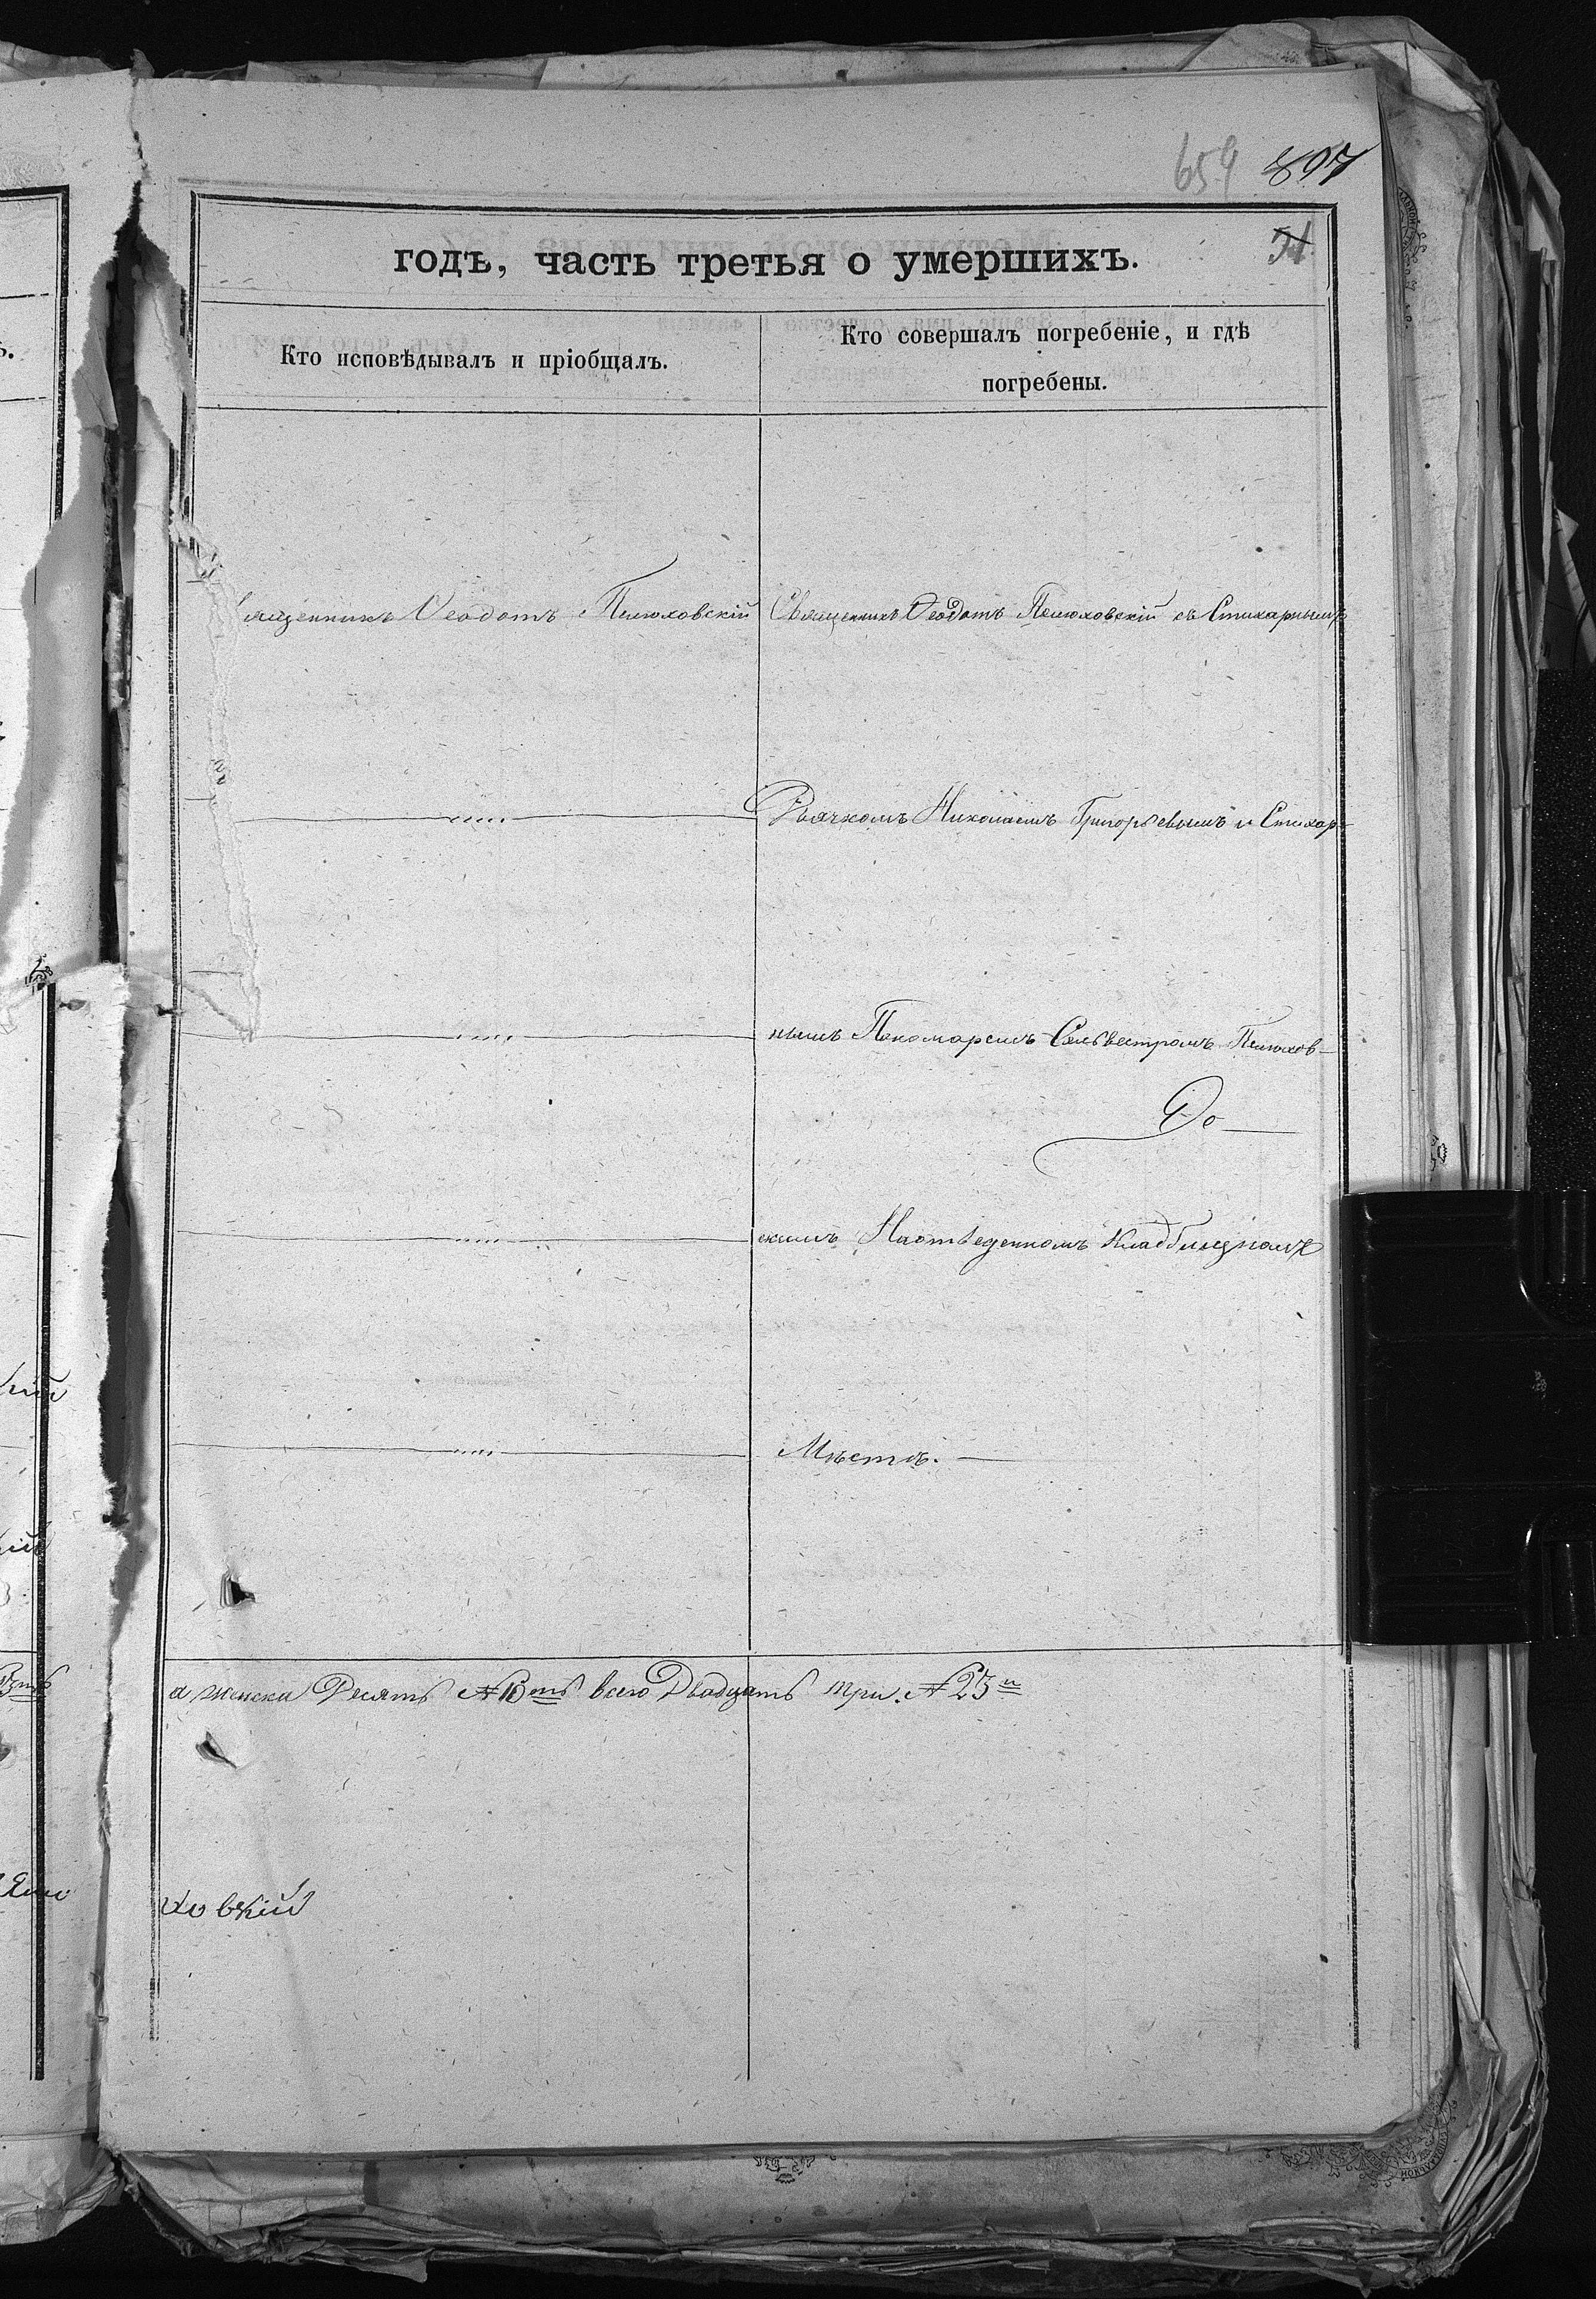 659 897
годъ, часть третья о умершихъ.
Кто исповѣдывалъ и пріобщалъ.
Кто совершалъ погребеніе, и гдѣ
погребены.
ященникъ Ѳеодотъ Пелюховскій
Священникъ Ѳеодотъ Пелюховскій съ Стихарнымъ
Дьячкомъ Николаемъ Григорьевымъ и Стихар-
нымъ Пономаремъ Сельвестромъ Пелюхов-
До
скимъ Наотведенномъ Кладбищномъ
Мѣстѣ.
а женска Десять №10ть всего Двадцать три. №23и
ховскій